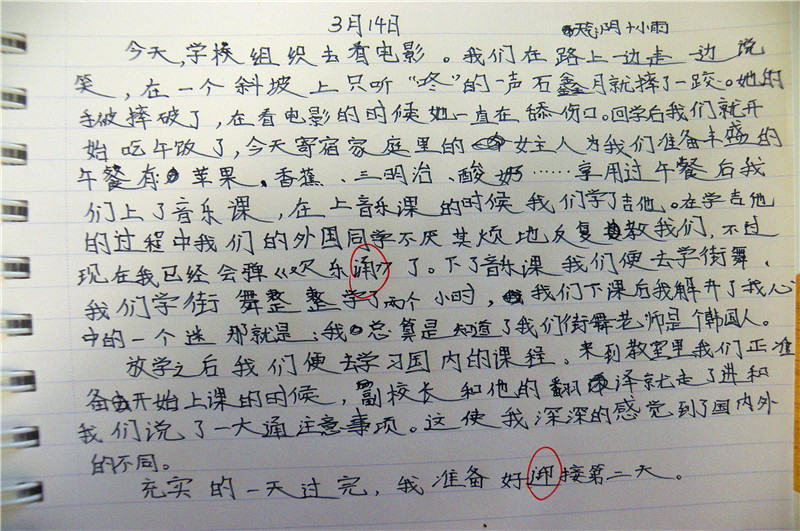 3月14日 天气:阴+小雨
今天,学校组织去看电影。我们在路上一边走一边说
笑,在一个斜坡上只听“咚”的一声石鑫月就摔了一跤。她的
手被摔破了,在看电影的时候她一直在舔伤口。回学后我们就开
始吃午饭了,今天寄宿家庭里的女主人为我们准备丰盛的
午餐有苹果、香蕉、三明治、酸奶……享用过午餐后我
们上了音乐课,在上音乐课的时候我们学了吉他。在学吉他
的过程中我们的外国同学不厌其烦地反复教我们,不过
现在我已经会弹《欢乐诵》了。下了音乐课我们便去学街舞,
我们学街舞整整学了两个小时,我们下课后我解开了我心
中的一个迷那就是:我总算是知道了我们街舞老师是个韩国人。
放学之后我们便去学习国内的课程,来到教室里我们正准
备开始上课的时候,副校长和他的翻译就走了进和
我们说了一大通注意事项。这使我深深的感觉到了国内外
的不同。
充实的一天过完,我准备好迎接第二天。